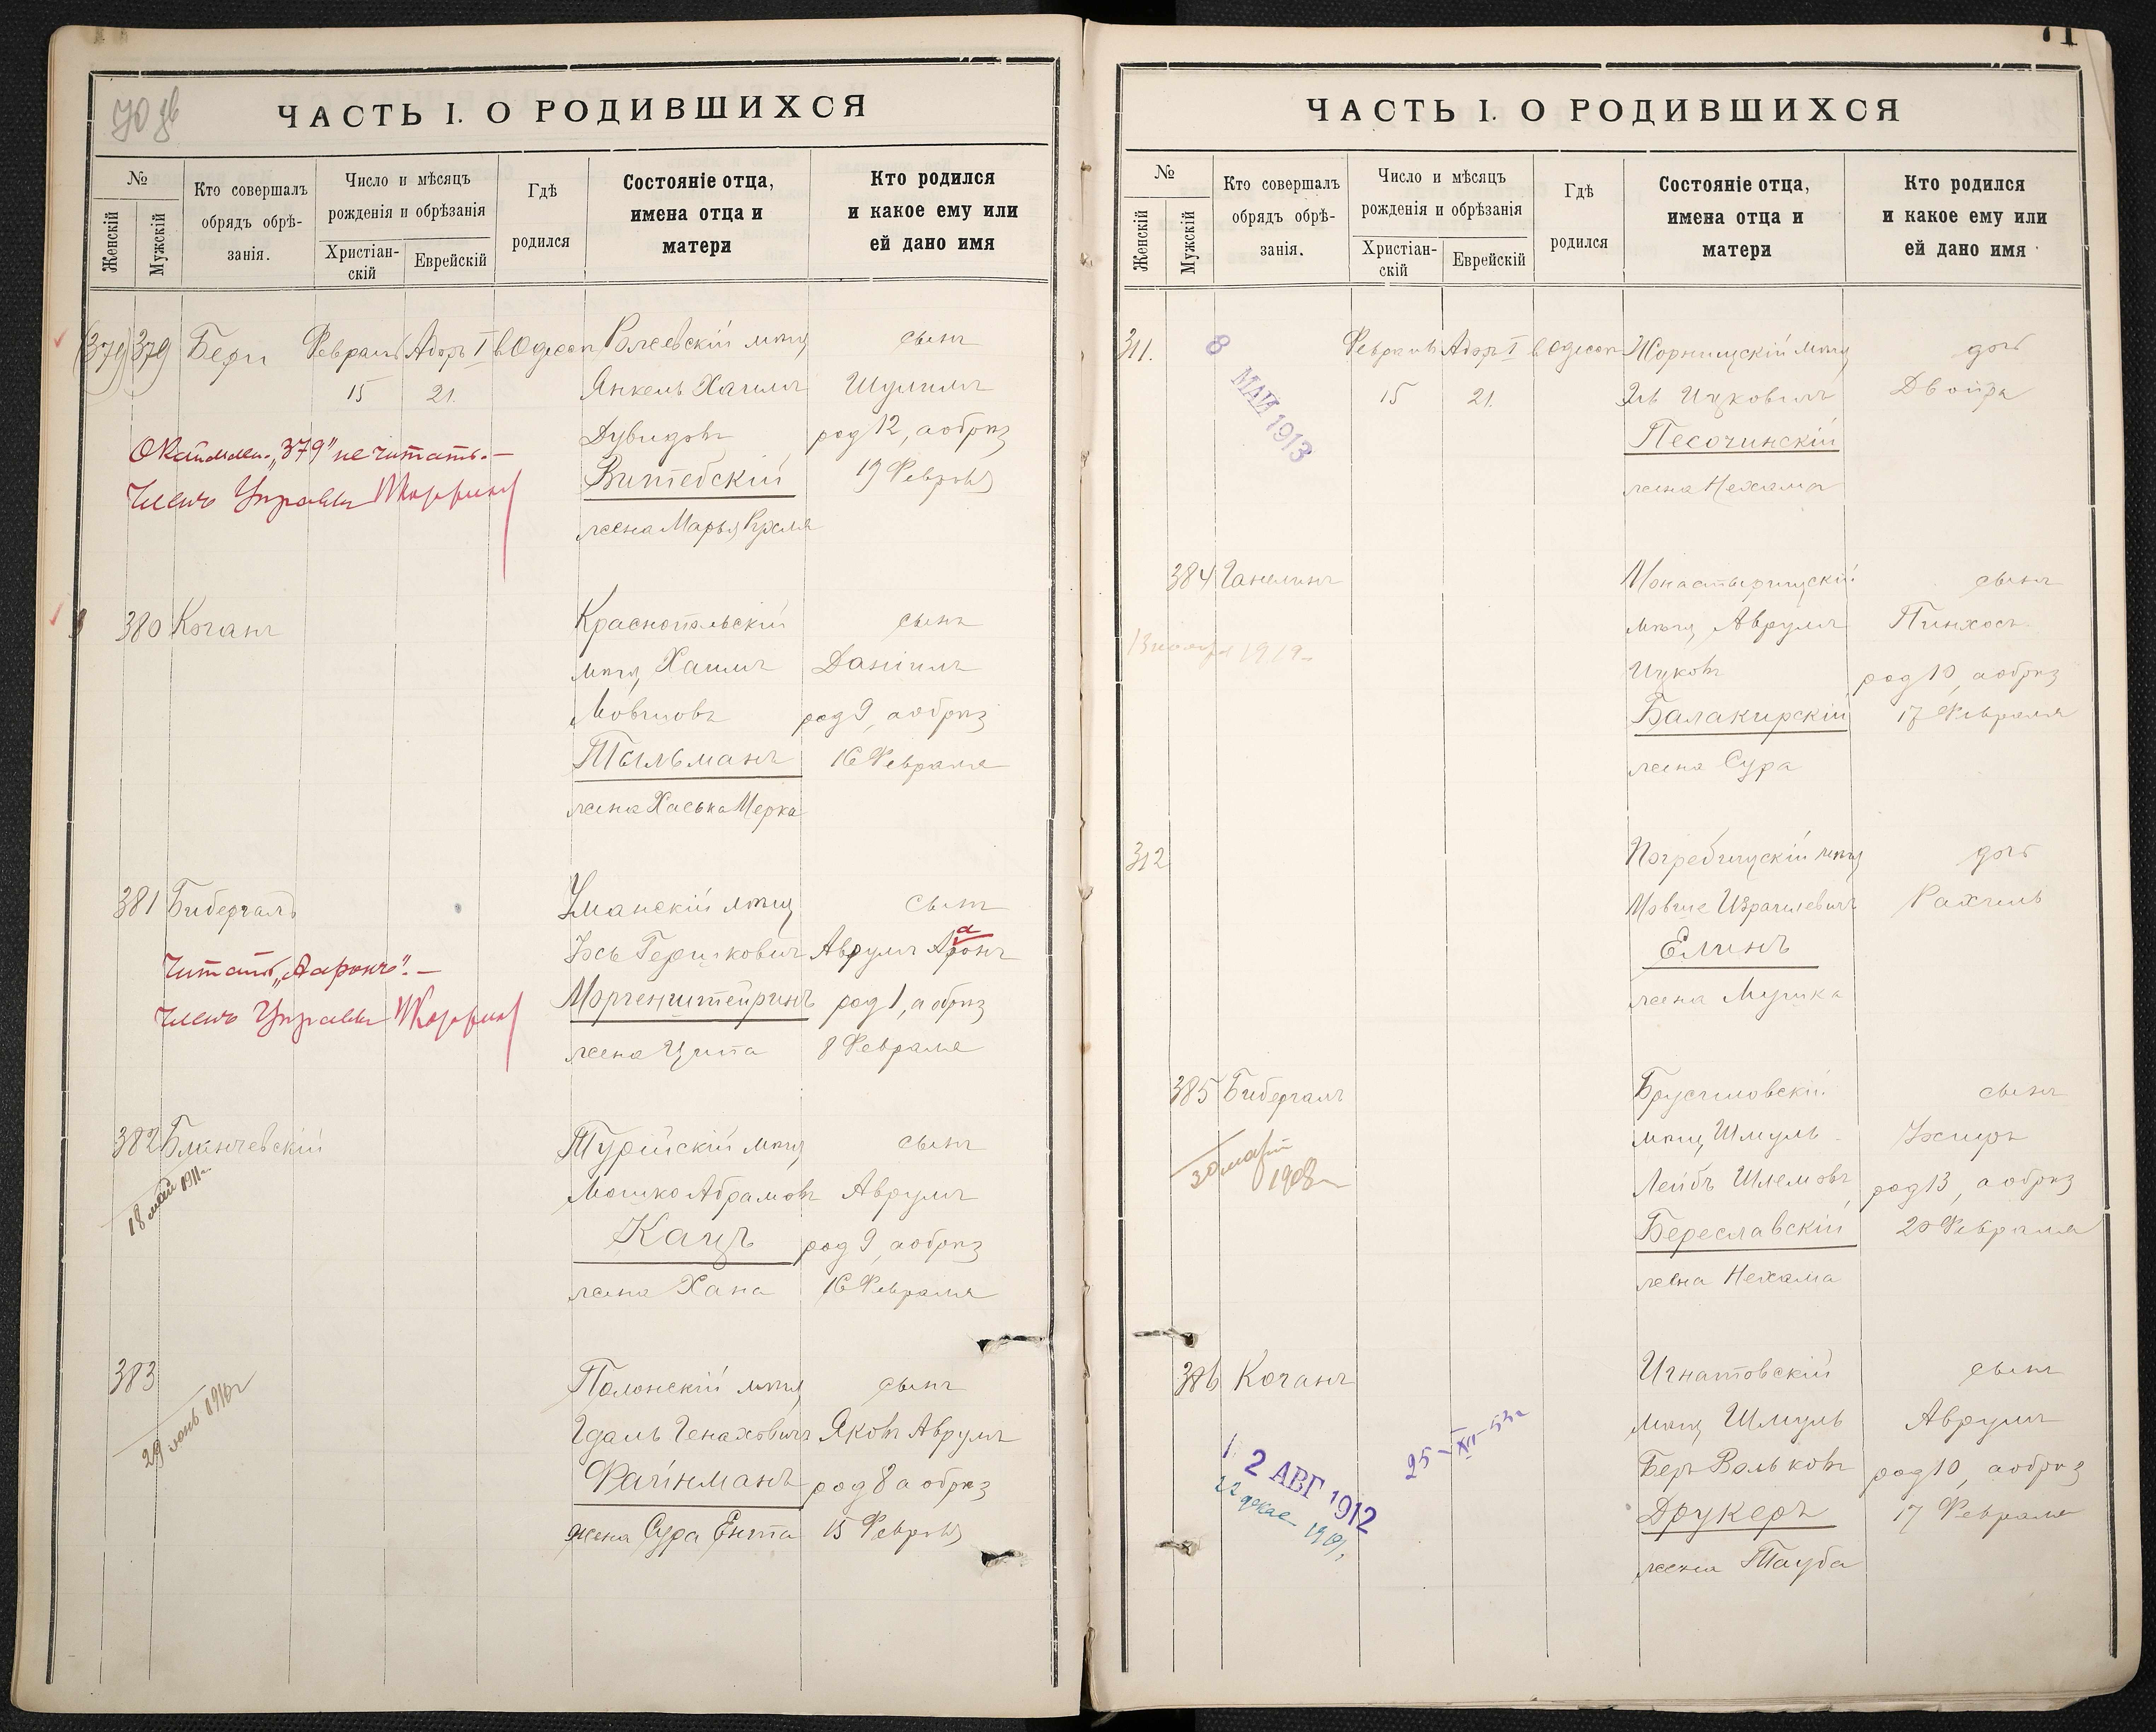 70 об
ЧАСТЬ I. О РОДИВШИХСЯ
№
Женскій
Мужскій
Кто совершалъ
обрядъ обрѣ-
занія.
Число и мѣсяцъ
рожденія и обрѣзанія
Христіан-
скій
Еврейскій
Гдѣ
родился
Состояніе отца,
имена отца и
матери
Кто родился
и какое ему или
ей дано имя
(379) 379 Бери Февраль Адоръ I в Одессѣ мѣщ сынъ
15 21. Янкель Хаимъ Шулимъ
Дувидовъ род 12, а обрѣз
Витебскій 19 Февраля
жена Марья
"379" не читать.—
Членъ Управы
380 Коганъ Краснопольскій сынъ
мѣщ Хаимъ Даніилъ
Мовшовъ род 9, а обрѣз
Тыльманъ 16 Февраля
жена Хаська Мерка
381 Бибергалъ Уманскій мѣщ сынъ
Іось Гершковичъ Аврумъ Аронъ
а
Моргенштейринъ род 1, а обрѣз
жена Ципа 8 Февраля
Читать „Ааронъ".—
Членъ Управы
382 Блинчевскій Турійскій мѣщ сынъ
Мошко Абрамовъ Аврумъ
Кацъ род 9, а обрѣз
жена Хана 16 Февраля
18 май 1911 г.
383 Полонскій мѣщ сынъ
Гдаль Генаховичъ Яковъ Аврумъ
Файнманъ род 8 а обрѣз
жена Сура Ента 15 Февраля
29 1916 г
71
ЧАСТЬ I. О РОДИВШИХСЯ
№
Женскій
Мужскій
Кто совершалъ
обрядъ обрѣ-
занія.
Число и мѣсяцъ
рожденія и обрѣзанія
Христіан-
скій
Еврейскій
Гдѣ
родился
Состояніе отца,
имена отца и
матери
Кто родился
и какое ему или
ей дано имя
311. Февраль Адоръ I в Одессѣ Жорнищскій мѣщ дочь
15 21. Эль Ицковичъ Двойра
Песочинскій
жена Нехама
8 МАЙ 1913
384 Ганелинъ Монастырищскій сынъ
мѣщ Аврумъ Пинхосъ
Ицковъ род 10, а обрѣз
Балакирскій 17 Февраля
жена Сура
13 1919
312 Погребищскій мѣщ дочь
Мовше Израилевичъ Рахиль
Елинъ
жена
385 Бибергалъ Брусиловскій сынъ
мѣщ Шмуль
Лейбъ Шлемовъ род 13, а обрѣз
Береславскій 20 Февраля
жена Нехама
30 1908 г
386 Коганъ Игнатовскій сынъ
мѣщ Шмуль Аврумъ
Беръ Вольковъ род 10, а обрѣз
Друкеръ 17 Февраля
жена Тауба
1 2 АВГ 1912
22 1919 г.
25 – XII – 53 г